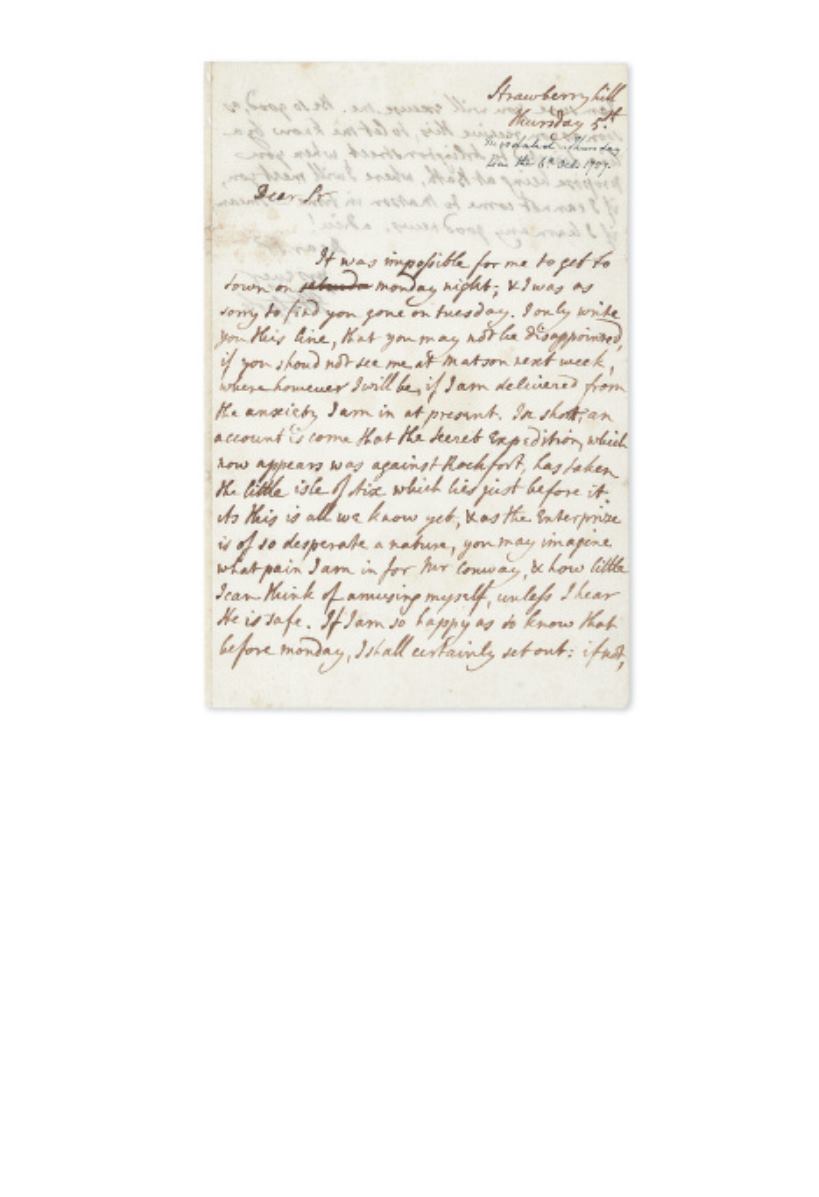 Strawberry hill
Thursday 5th
Misdated. Thursday
was the 6th Oct. 1757.
Dear Sr
It was impossible for me to get to
town on monday night; & I was as
sorry to find you gone on tuesday. I only write
you this line, that you may not be disappointed,
if you shoud not see me at Matson next week,
where however I will be, if I am delivered from
the anxiety I am in at present. In short, an
account is come that the secret Expedition, which
now appears was against Rochfort, has taken
the little isle of Aix which lies just before it.
As this is all we know yet, & as the Enterprize
is of so desperate a nature, you may imagine
what pain I am in for Mr Conway, & how little
I can think of amusing myself, unless I hear
He is safe. If I am so happy as to know that
before monday, I shall certainly set out: if not,